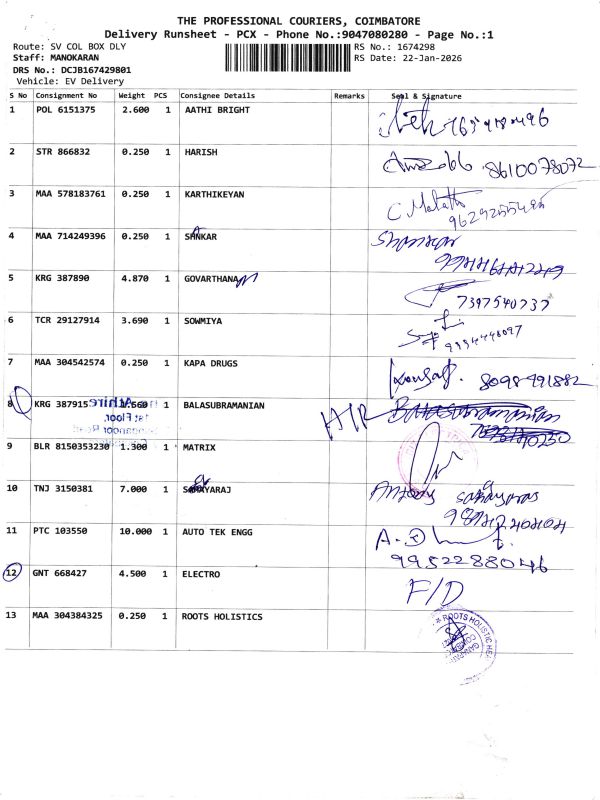 THE PROFESSIONAL COURIERS, COIMBATORE
Delivery Runsheet - PCX - Phone No.:9047080280 - Page No.:1
Route: SV COL BOX DLY RS No.: 1674298
Staff: MANOKARAN RS Date: 22-Jan-2026
DRS No.: DCJB167429801
Vehicle: EV Delivery
S No Consignment No Weight PCS Consignee Details Remarks Seal & Signature
1 POL 6151375 2.600 1 AATHI BRIGHT
2 STR 866832 0.250 1 HARISH 8610078072
3 MAA 578183761 0.250 1 KARTHIKEYAN C. Malath
4 MAA 714249396 0.250 1 SANKAR Shankar
5 KRG 387890 4.870 1 GOVARTHANAM 7397540737
6 TCR 29127914 3.690 1 SOWMIYA
7 MAA 304542574 0.250 1 KAPA DRUGS 8098491882
8 KRG 387915 1.660 1 BALASUBRAMANIAN Balasubramanian
1st Floor,
9 BLR 8150353230 1.300 1 MATRIX
10 TNJ 3150381 7.000 1 SAHAYARAJ Antony sahayaras
11 PTC 103550 10.000 1 AUTO TEK ENGG
9952288046
12 GNT 668427 4.500 1 ELECTRO F/D
13 MAA 304384325 0.250 1 ROOTS HOLISTICS
ROOTS HOLISTIC